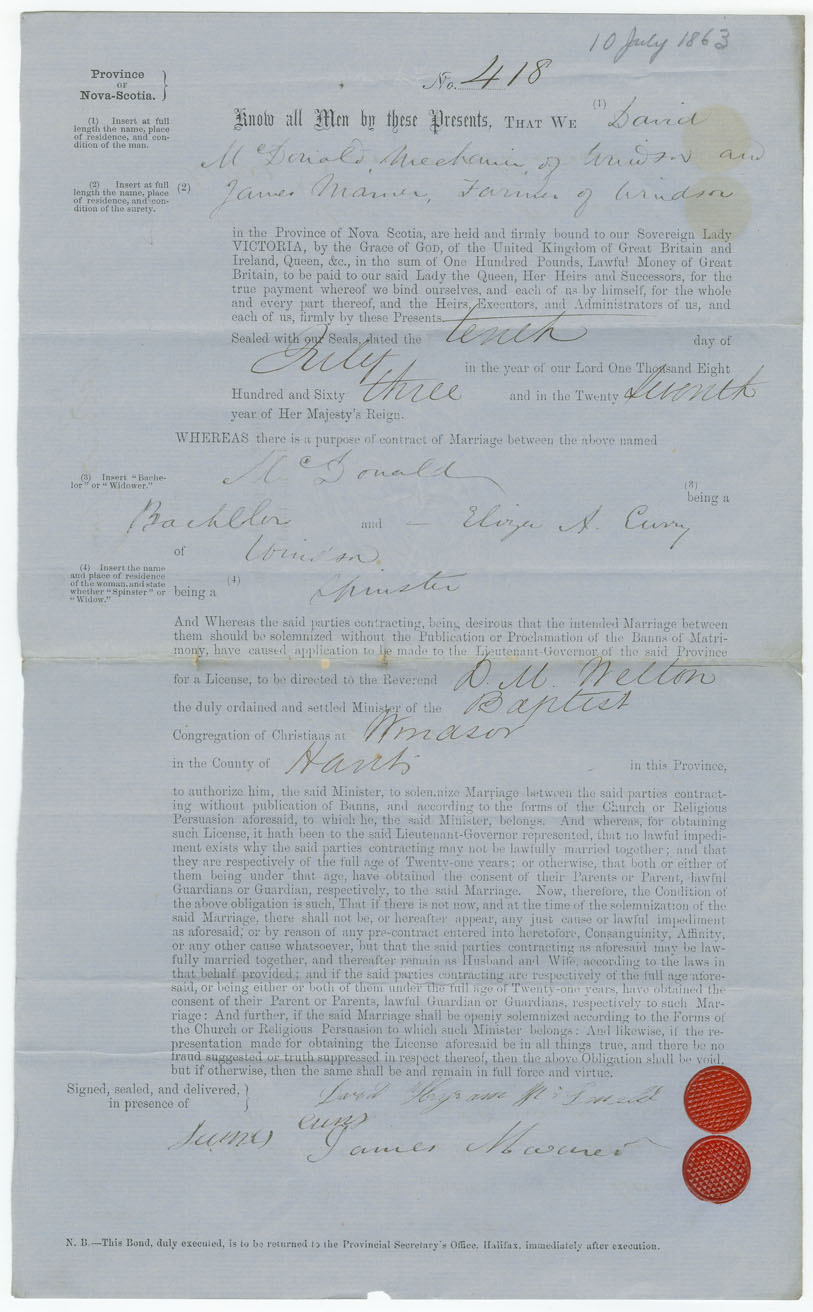 10 July 1863
Province
OF
Nova-Scotia.
No. 418
(1) Insert at full
length the name, place
of residence, and con-
dition of the man.
Know all Men by these Presents, THAT WE (1) David
McDonald, Mechanic, of Windsor and
(2) Insert at full
length the name, place
of residence, and con-
dition of the surety.
(2) James , Farmer of Windsor
in the Province of Nova Scotia, are held and firmly bound to our Sovereign Lady
VICTORIA, by the Grace of GOD, of the United Kingdom of Great Britain and
Ireland, Queen, &c., in the sum of One Hundred Pounds, Lawful Money of Great
Britain, to be paid to our said Lady the Queen, Her Heirs and Successors, for the
true payment whereof we bind ourselves, and each of us by himself, for the whole
and every part thereof, and the Heirs, Executors, and Administrators of us, and
each of us, firmly by these Presents.
Sealed with our Seals, dated the tenth day of
July in the year of our Lord One Thousand Eight
Hundred and Sixty three and in the Twenty Seventh
year of Her Majesty's Reign.
WHEREAS there is a purpose of contract of Marriage between the above named
McDonald
(3) Insert "Bache-
lor" or "Widower."
(3)
being a
Bachllor and – Eliza A. Curry
of Windsor
(4) Insert the name
and place of residence
of the woman, and state
whether "Spinster" or
"Widow."
being a (4) Spinster
And Whereas the said parties contracting, being desirous that the intended Marriage between
them should be solemnized without the Publication or Proclamation of the Banns of Matri-
mony, have caused application to be made to the Lieutenant-Governor of the said Province
for a License, to be directed to the Reverend D. M. Welton
the duly ordained and settled Minister of the Baptist
Congregation of Christians at Windsor
in the County of Hants in this Province,
to authorize him, the said Minister, to solemnize Marriage between the said parties contract-
ing without publication of Banns, and according to the forms of the Church or Religious
Persuasion aforesaid, to which he, the said Minister, belongs. And whereas, for obtaining
such License, it hath been to the said Lieutenant-Governor represented, that no lawful impedi-
ment exists why the said parties contracting may not be lawfully married together; and that
they are respectively of the full age of Twenty-one years; or otherwise, that both or either of
them being under that age, have obtained the consent of their Parents or Parent, lawful
Guardians or Guardian, respectively, to the said Marriage. Now, therefore, the Condition of
the above obligation is such, That if there is not now, and at the time of the solemnization of the
said Marriage, there shall not be, or hereafter appear, any just cause or lawful impediment
as aforesaid; or by reason of any pre-contract entered into heretofore, Consanguinity, Affinity,
or any other cause whatsoever, but that the said parties contracting as aforesaid may be law-
fully married together, and thereafter remain as Husband and Wife, according to the laws in
that behalf provided; and if the said parties contracting are respectively of the full age afore-
said, or being either or both of them under the full age of Twenty-one years, have obtained the
consent of their Parent or Parents, lawful Guardian or Guardians, respectively to such Mar-
riage: And further, if the said Marriage shall be openly solemnized according to the Forms of
the Church or Religious Persuasion to which such Minister belongs: And likewise, if the re-
presentation made for obtaining the License aforesaid be in all things true, and there be no
fraud suggested or truth suppressed in respect thereof, then the above Obligation shall be void,
but if otherwise, then the same shall be and remain in full force and virtue.
Signed, sealed, and delivered,
in presence of
David McDonald
James
N. B.—This Bond, duly executed, is to be returned to the Provincial Secretary's Office, Halifax, immediately after execution.